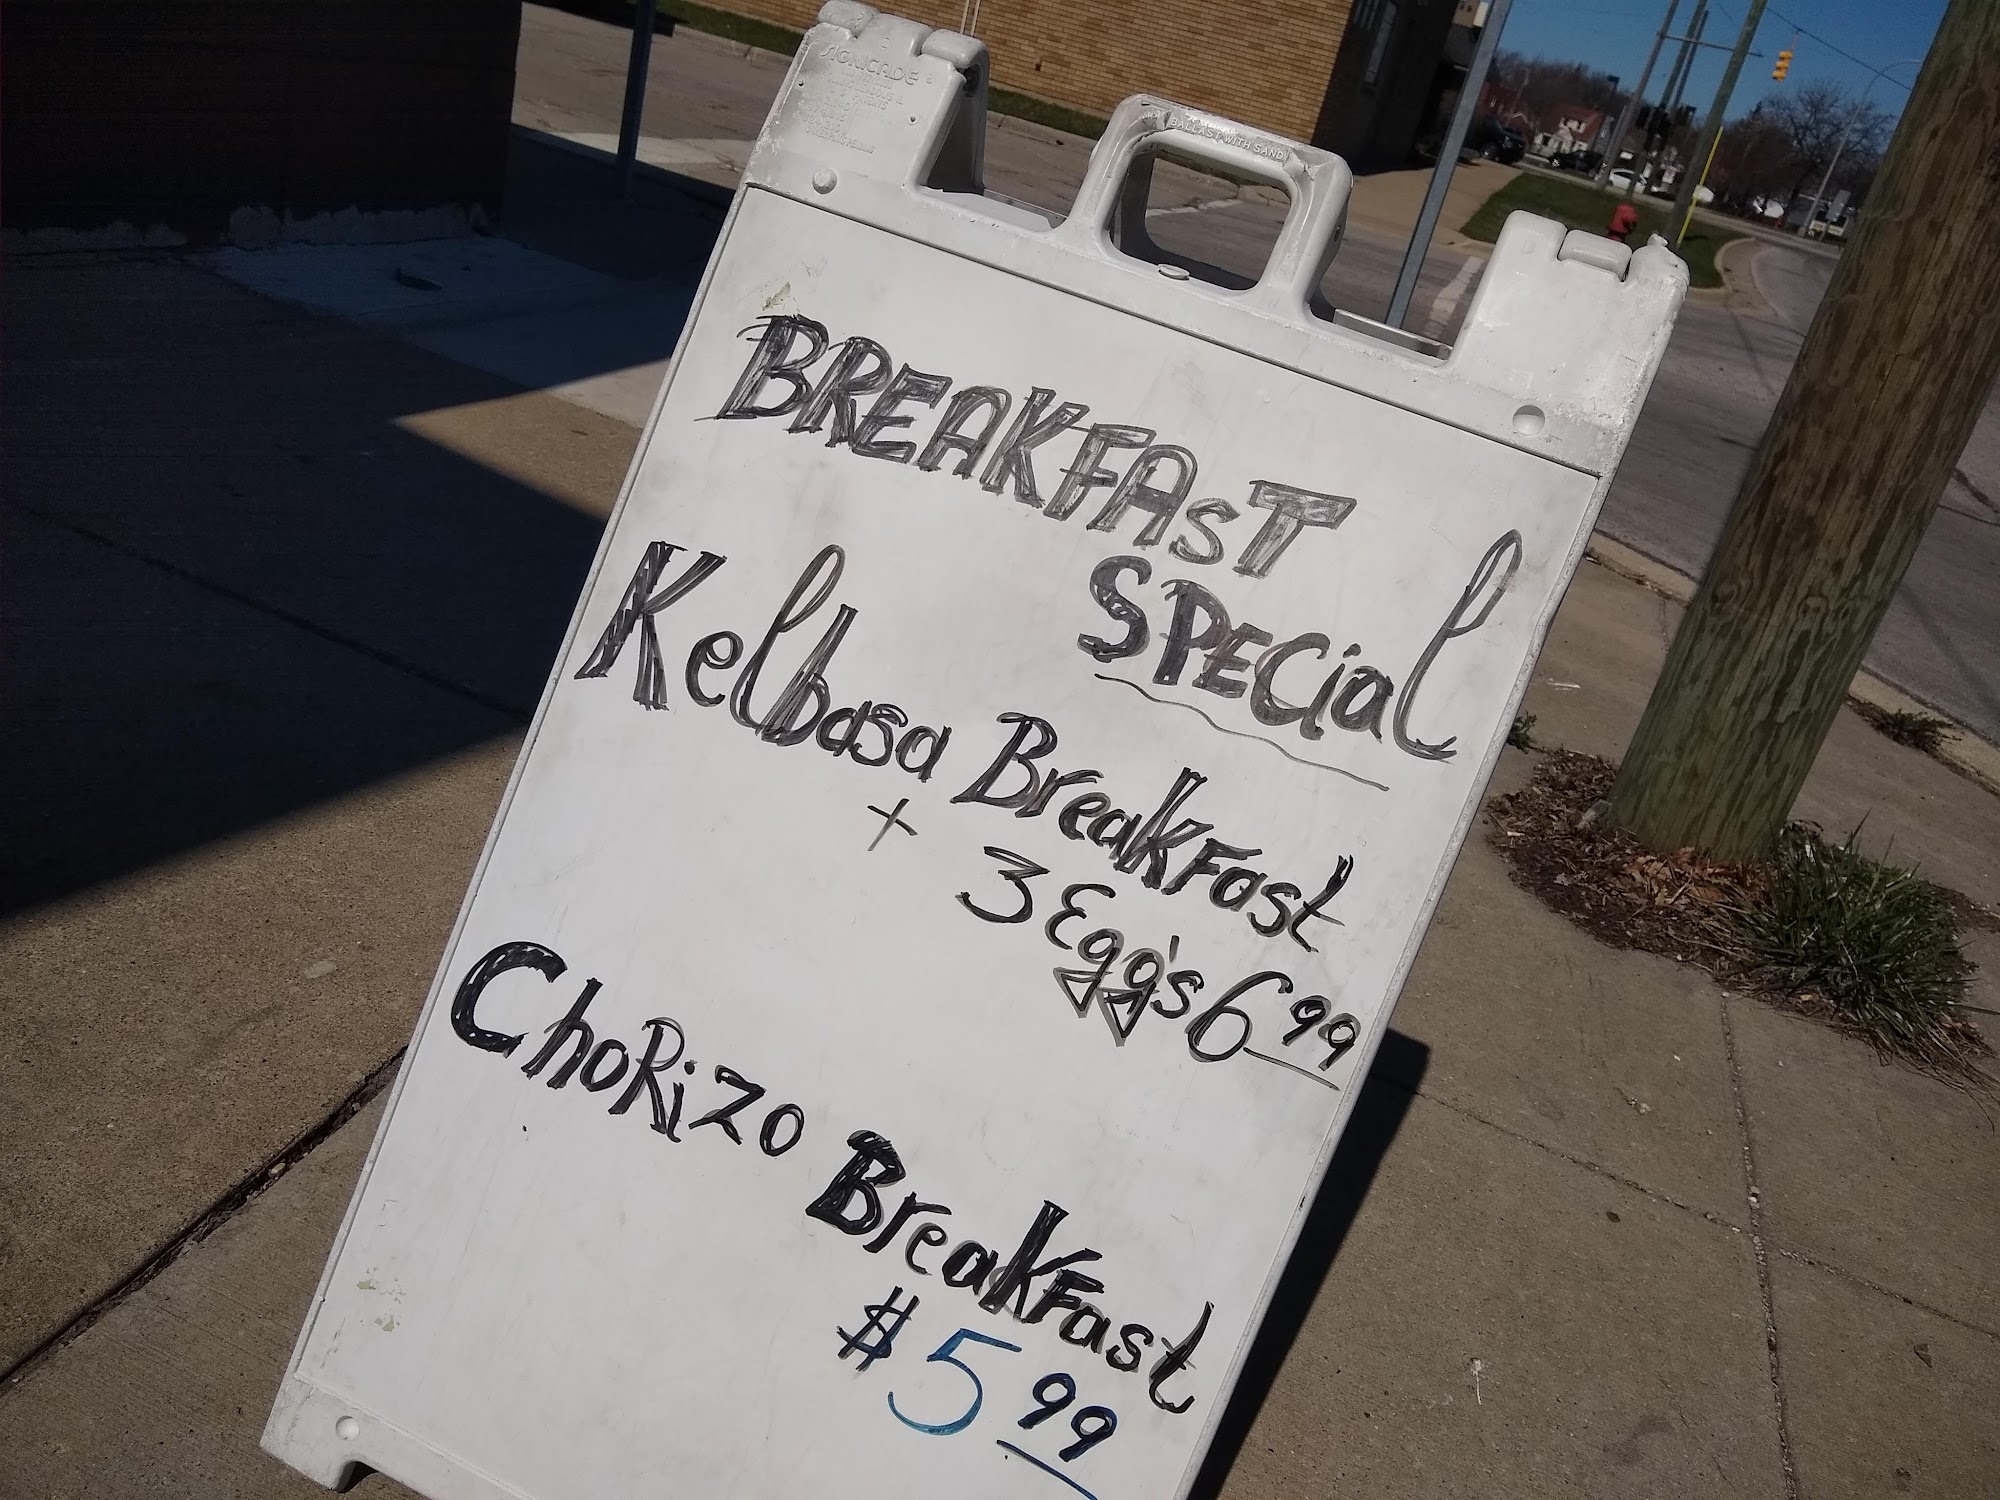 SIGNICADE
BALLAST WITH SAND
BREAKFAsT
SPECial
Kelbasa BreakFast
+ 3 Egg's 6 99
ChoRizo BreakFast
$5 99